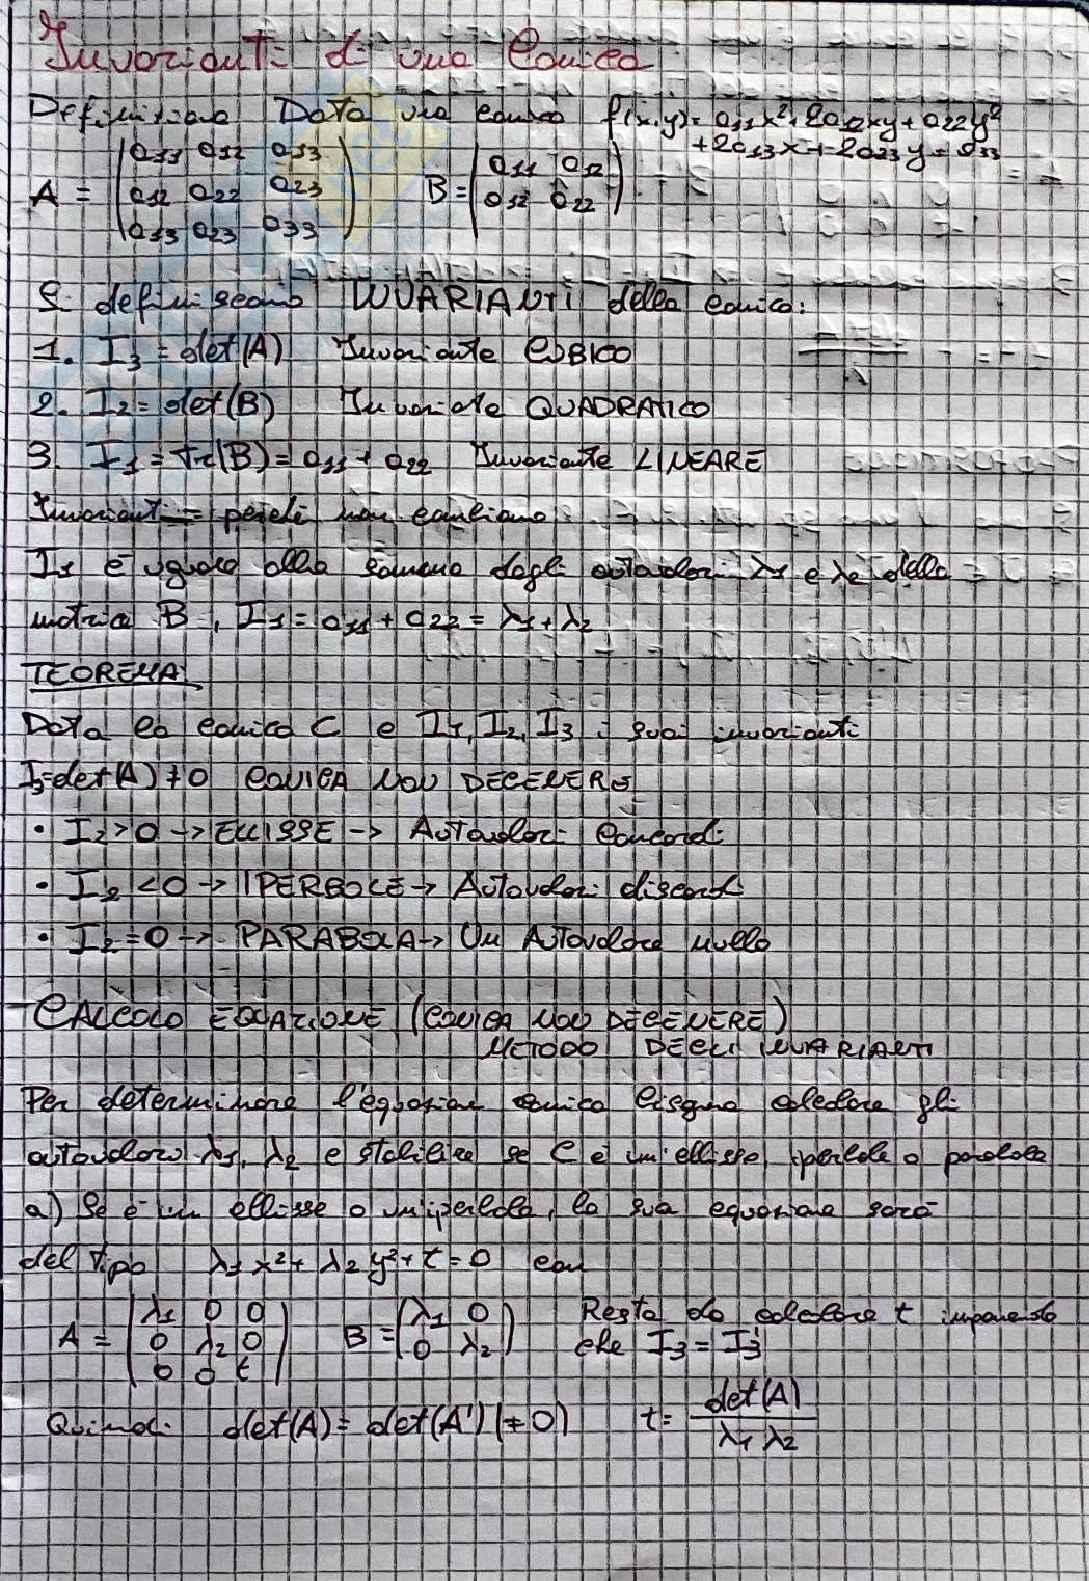 Invarianti di una Conica
Definizione Data una conica f(x,y)= a11x²+2a12xy+a22y²
+2a13x+2a23y= a33
A = (a11 a12 a13
a12 a22 a23
a13 a23 a33)
B = (a11 a12
a12 a22)
Si definiscono INVARIANTI della conica:
1. I3 = det(A) Invariante CUBICO
2. I2 = det(B) Invariante QUADRATICO
3. I1 = tr(B) = a11 + a22 Invariante LINEARE
Invarianti = perché non cambiano
I1 è uguale alla somma degli autovalori λ1 e λ2 della
matrice B, I1 = a11 + a22 = λ1 + λ2
TEOREMA
Data la conica C e I1, I2, I3 i suoi invarianti
I3=det(A) ≠ 0 CONICA NON DEGENERE
• I2 > 0 → ELLISSE → Autovalori concordi
• I2 < 0 → IPERBOLE → Autovalori discordi
• I2 = 0 → PARABOLA → Un Autovalore nullo
CALCOLO EQUAZIONE (CONICA NON DEGENERE)
METODO DEGLI INVARIANTI
Per determinare l'equazione conica bisogna calcolare gli
autovalori λ1, λ2 e stabilire se C è un'ellisse, iperbole o parabola
a) Se è un ellisse o un'iperbole, la sua equazione sarà
del tipo λ1x² + λ2y² + t = 0 con
A = (λ1 0 0
0 λ2 0
0 0 t)
B = (λ1 0
0 λ2)
Resta da calcolare t imponendo
che I3 = I3'
Quindi: det(A) = det(A') (≠ 0) t = det(A)
λ1 λ2